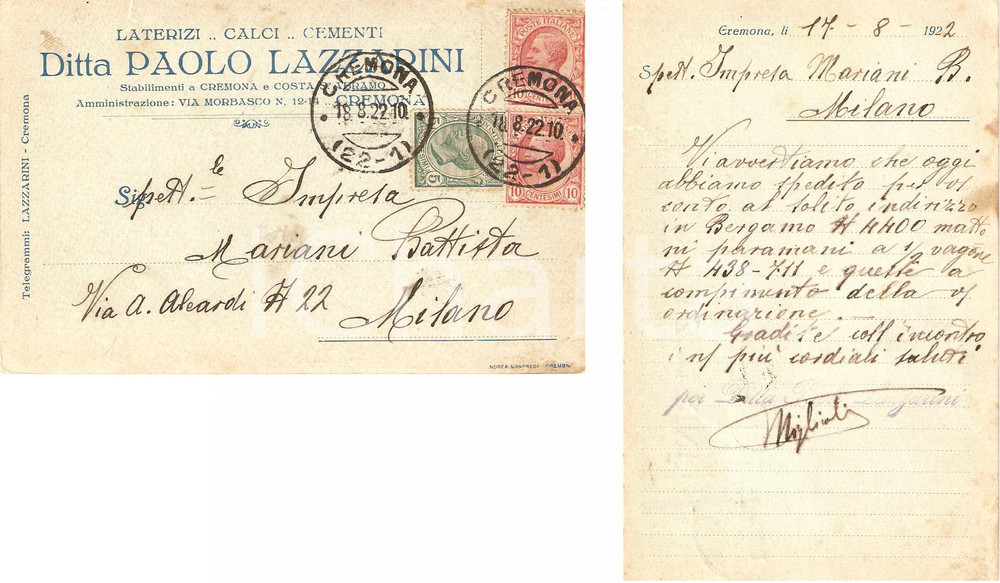 LATERIZI .. CALCI .. CEMENTI
Ditta PAOLO LAZZARINI
Stabilimenti a CREMONA e COSTA
Amministrazione: VIA MORBASCO N. 12-14 .. CREMONA
Telegrammi: LAZZARINI - Cremona
CREMONA
18.8.22.10
(22-1)
CREMONA
18.8.22.10
(22-1)
POSTE ITALIANE
5
10 CENTESIMI 10
Spett.le Impresa
Mariani Battista
Via A. Aleardi N 22
Milano
ANDREA MANFREDI - CREMONA
Cremona, li 17 - 8 - 1922
Spett. Impresa Mariani B.
Milano
Vi avvertiamo che oggi
abbiamo spedito per vs/
conto al solito indirizzo
in Bergamo N 4400 matto
ni paramani a 1/2 vagone
N 438-711 e queste a
compimento della vs/
ordinazione. —
Gradite coll'incontro
i ns/ più cordiali saluti
per Ditta Paolo Lazzarini